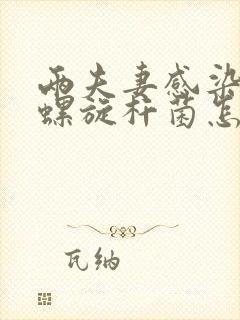 两夫妻感染
螺旋杆菌怎
瓦纳